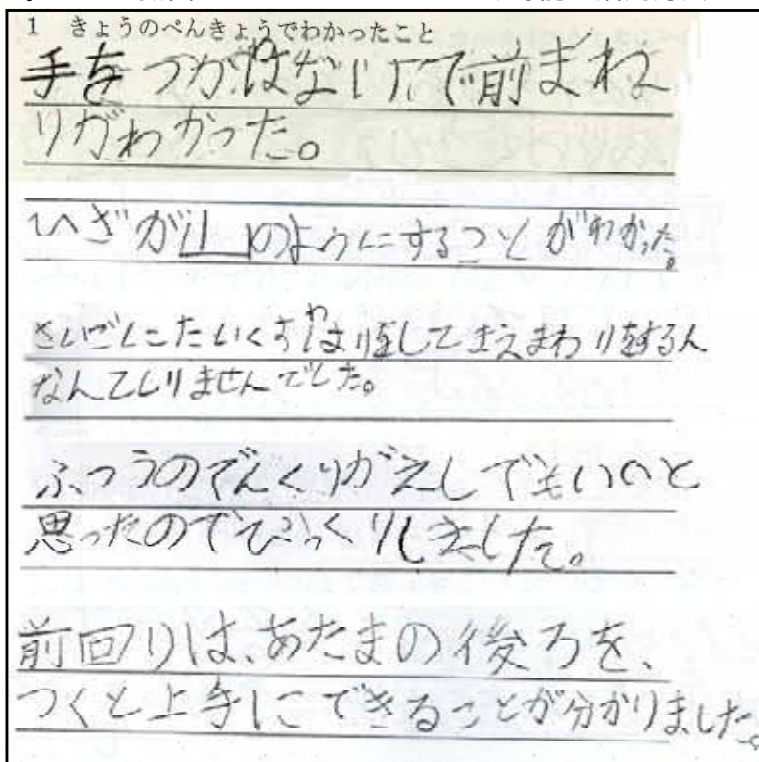 1 きょうのべんきょうでわかったこと
手をつかわないで前まわ
りがわかった。
ひざが山のようにすることがわかった。
さいごにたいくすわりをしてまえまわりをするん
なんてしりませんでした。
ふつうのでんぐりがえしでもいいと
思ったのでびっくりしました。
前回りは、あたまの後ろを、
つくと上手にできることが分かりました。